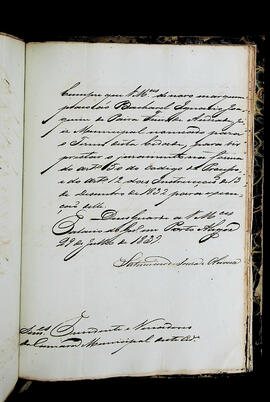 Cumpre que V.Mces de novo marquem
prazo ao Bacharel Ignacio Joa-
quim de Paiva Freire Andrade Ju-
iz Municipal nomeado para
o Termo desta Cidade, para vir
prestar o juramento na forma
do artº 50 do Codigo do Processo
e do artº 12 das Instrucções de 13
de Dezembro de 1832 para a execu-
ção delle.
Deos Guarde a V.Mces
Palacio do Governo em Porto Alegre
29 de Julho de 1837.
Snres Presidente e Vereadores
da Camara Municipal desta Cide